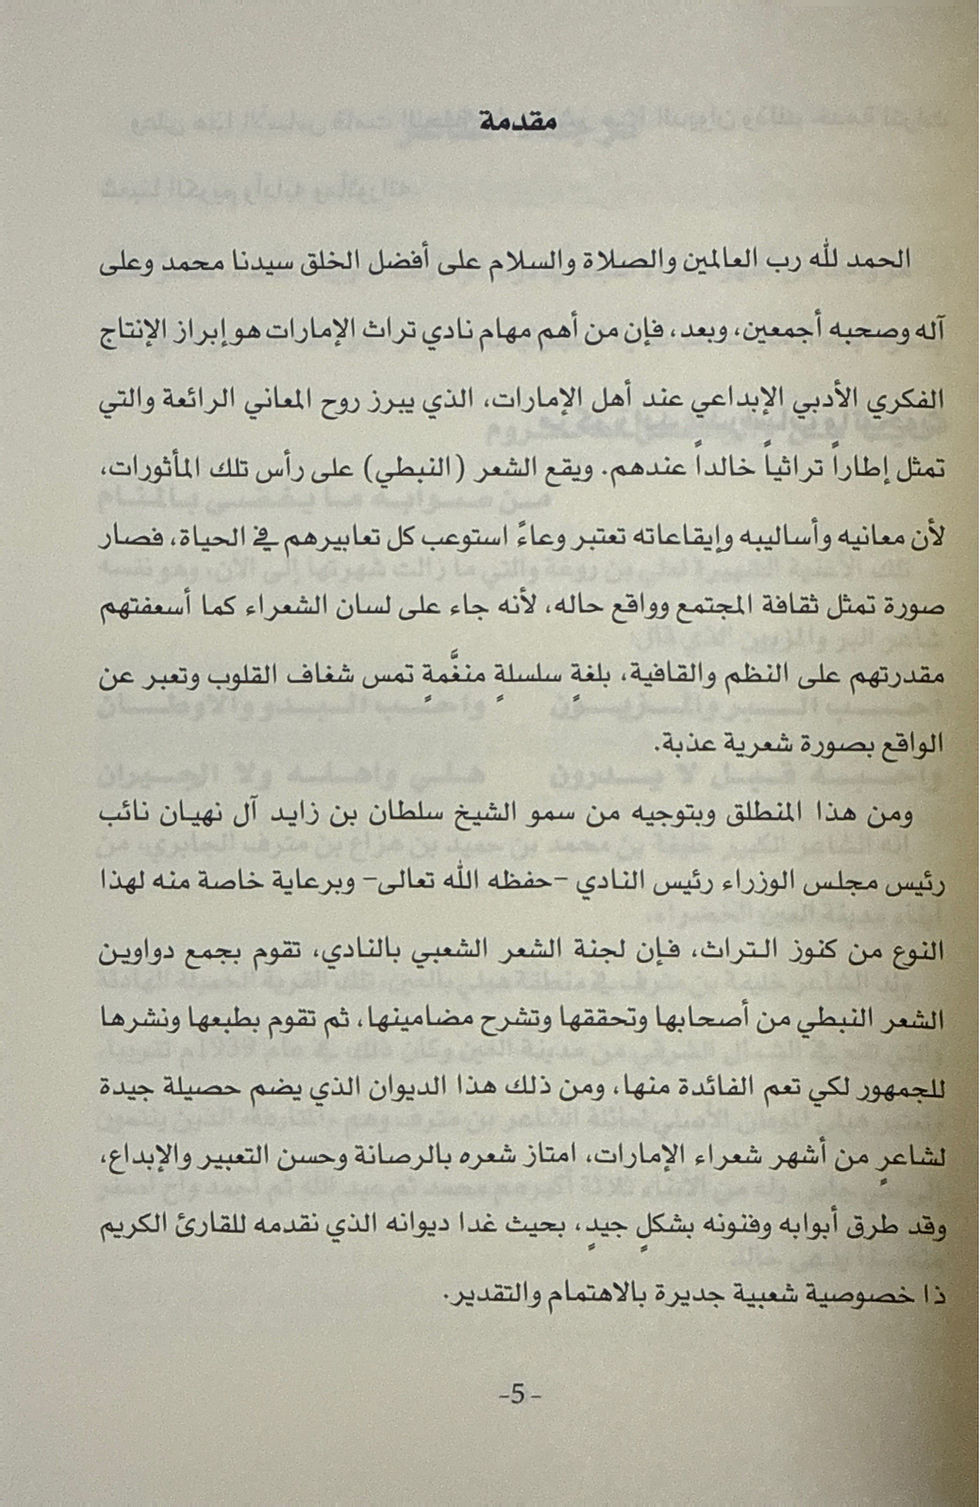 مقدمة
الحمد لله رب العالمين والصلاة والسلام على أفضل الخلق سيدنا محمد وعلى
آله وصحبه أجمعين، وبعد، فإن من أهم مهام نادي تراث الإمارات هو إبراز الإنتاج
الفكري الأدبي الإبداعي عند أهل الإمارات، الذي يبرز روح المعاني الرائعة والتي
تمثل إطاراً تراثياً خالداً عندهم. ويقع الشعر (النبطي) على رأس تلك المأثورات،
لأن معانيه وأساليبه وإيقاعاته تعتبر وعاءً استوعب كل تعابيرهم في الحياة، فصار
صورة تمثل ثقافة المجتمع وواقع حاله، لأنه جاء على لسان الشعراء كما أسعفتهم
مقدرتهم على النظم والقافية، بلغةٍ سلسلةٍ منغَّمةٍ تمس شغاف القلوب وتعبر عن
الواقع بصورة شعرية عذبة.
ومن هذا المنطلق وبتوجيه من سمو الشيخ سلطان بن زايد آل نهيان نائب
رئيس مجلس الوزراء رئيس النادي -حفظه الله تعالى- وبرعاية خاصة منه لهذا
النوع من كنوز التراث، فإن لجنة الشعر الشعبي بالنادي، تقوم بجمع دواوين
الشعر النبطي من أصحابها وتحققها وتشرح مضامينها، ثم تقوم بطبعها ونشرها
للجمهور لكي تعم الفائدة منها، ومن ذلك هذا الديوان الذي يضم حصيلة جيدة
لشاعرٍ من أشهر شعراء الإمارات، امتاز شعره بالرصانة وحسن التعبير والإبداع،
وقد طرق أبوابه وفنونه بشكلٍ جيدٍ، بحيث غدا ديوانه الذي نقدمه للقارئ الكريم
ذا خصوصية شعبية جديرة بالاهتمام والتقدير.
-5-